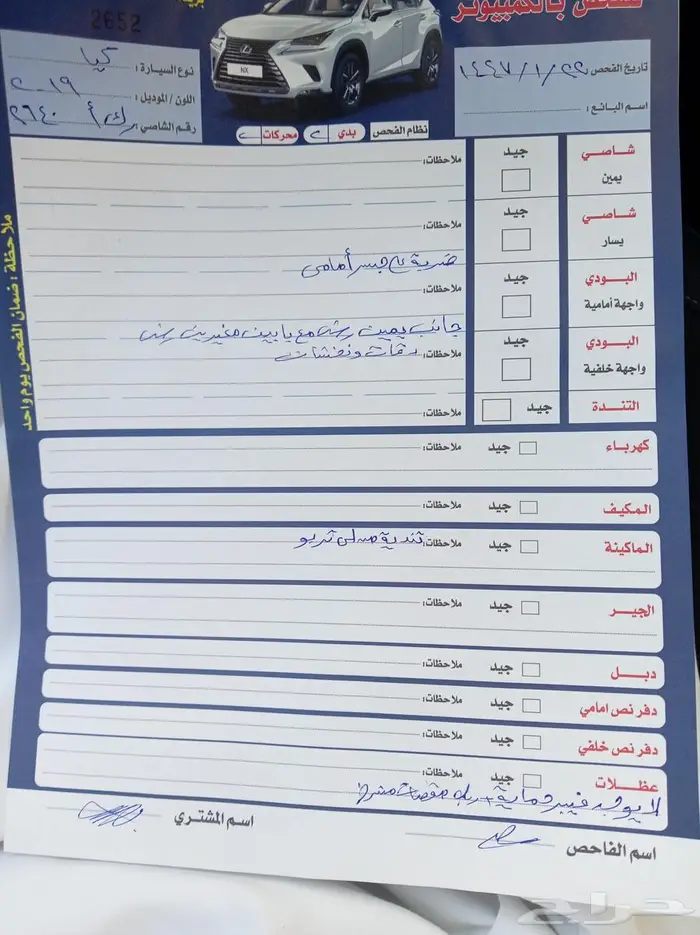 فحص بالكمبيوتر
2652
NX
تاريخ الفحص: ١٤٤٧/١/٢٢
نوع السيارة: كيا
اسم البائع:
اللون / الموديل: ٢٠١٩
رقم الشاصي: ٢٦٤٠
نظام الفحص بدي محركات
شاصي يمين
جيد
ملاحظات:
شاصي يسار
جيد
ملاحظات:
ضربة على جسر أمامي
البودي واجهة أمامية
جيد
ملاحظات:
جانب يمين رش مع بابين مغيرين رش
البودي واجهة خلفية
جيد
ملاحظات: دقات وخشات
التندة
جيد
ملاحظات:
كهرباء
جيد
ملاحظات:
المكيف
جيد
ملاحظات:
الماكينة
جيد
ملاحظات: تندية من لي تربو
الجير
جيد
ملاحظات:
دبل
جيد
ملاحظات:
دفرنص امامي
جيد
ملاحظات:
دفرنص خلفي
جيد
ملاحظات:
عظلات
جيد
ملاحظات:
لا يوجد فيبر حماية ربل مقصات مشرخ
اسم الفاحص
اسم المشتري
ملاحظة : ضمان الفحص يوم واحد
حراج